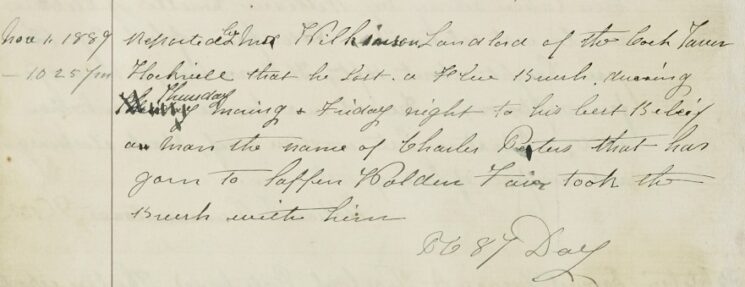 Nov 1. 1889 Reported by Mr Wilkinson Landlord of the Cock Tavern
— 10 25 pm Hockrill that he Lost. a Flue Brush. during
Thursday
moring & Friday night to his best Belief
a man the name of Charles Peters that has
gorn to Saffen Walden Fair took the
Brush with him
PC 87 Day